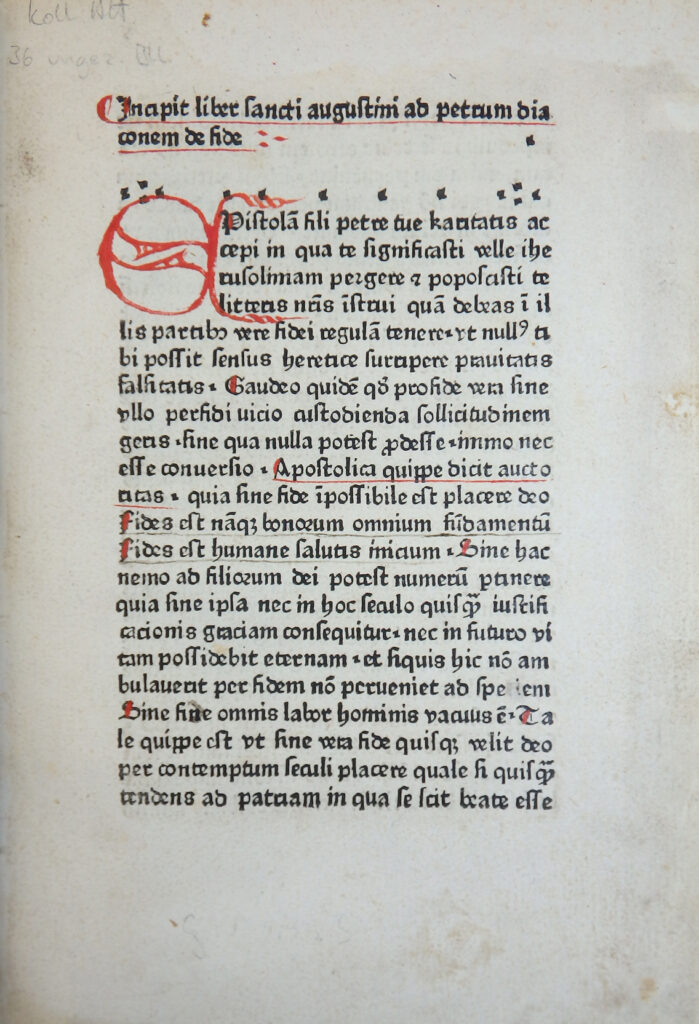 koll Alt
36 ungez. Bll.
Incipit liber sancti augustini ad petrum dia
conem de fide
EPistolā fili petre tue karitatis ac
cepi in qua te significasti velle ihe
rusolimam pergere ⁊ poposcisti te
litteris nr̄is īstrui quā debeas ī il
lis partibꝰ vere fidei regulā tenere·vt nullꝰ ti
bi possit sensus heretice surripere prauitatis
falsitatis· Gaudeo quidē qď profide vera sine
vllo perfidi uicio custodienda sollicitudinem
geris·sine qua nulla potest ꝓdesse·immo nec
esse conuersio· Apostolica quippe dicit aucto
ritas· quia sine fide īpossibile est placere deo
Fides est nāqꝫ bonorum omnium fūdamentū
Fides est humane salutis inicium·Sine hac
nemo ad filiorum dei potest numerū ꝑtinere
quia sine ipsa nec in hoc seculo quisqꝫ̄ iustifi
cacionis graciam consequitur·nec in futuro vi
tam possidebit eternam·et siquis hic nō am
bulauerit per fidem nō perueniet ad spe iem
Sine fide omnis labor hominis vacuus ē·Ta
le quippe est vt sine vera fide quisqꝫ velit deo
per contemptum seculi placere quale si quisqꝫ̄
tendens ad patriam in qua se scit beate esse